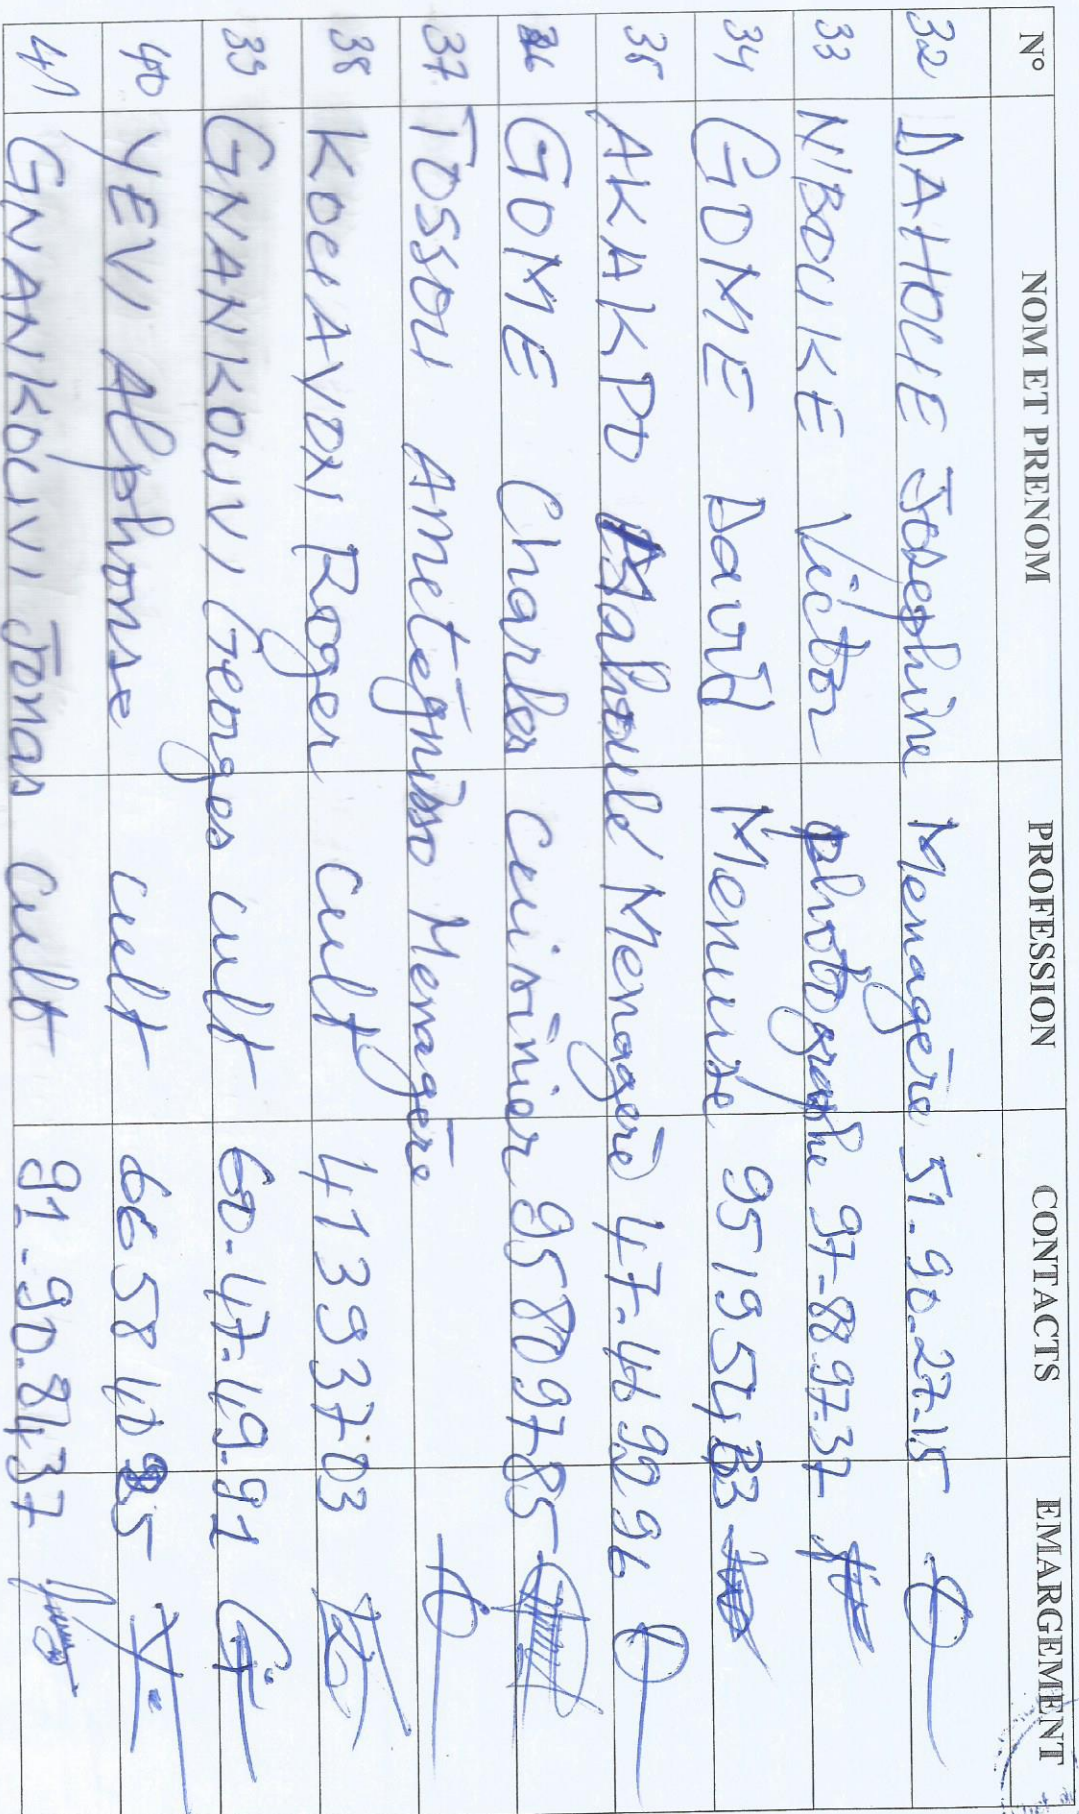 N° NOM ET PRENOM PROFESSION CONTACTS EMARGEMENT
32 DAHOUE Josephine Menagère 51-90-27-15
33 N'BOUKE Victor photographe 97-88-97-37
34 GOME David Menuise 95195483
35 AKAKPO Menagère 47-46 99 96
36 GOME Charles Cuisinier 95809785
37 TOSSOU Ametegnisso Menagère
38 KOUAVOVI Roger Cult 41393703
39 GNANKOUVI Georges cult 60-47-49-91
40 YEVI Alphonse cult 66584085
41 GNANKOUVI Jonas cult 91-90-8437